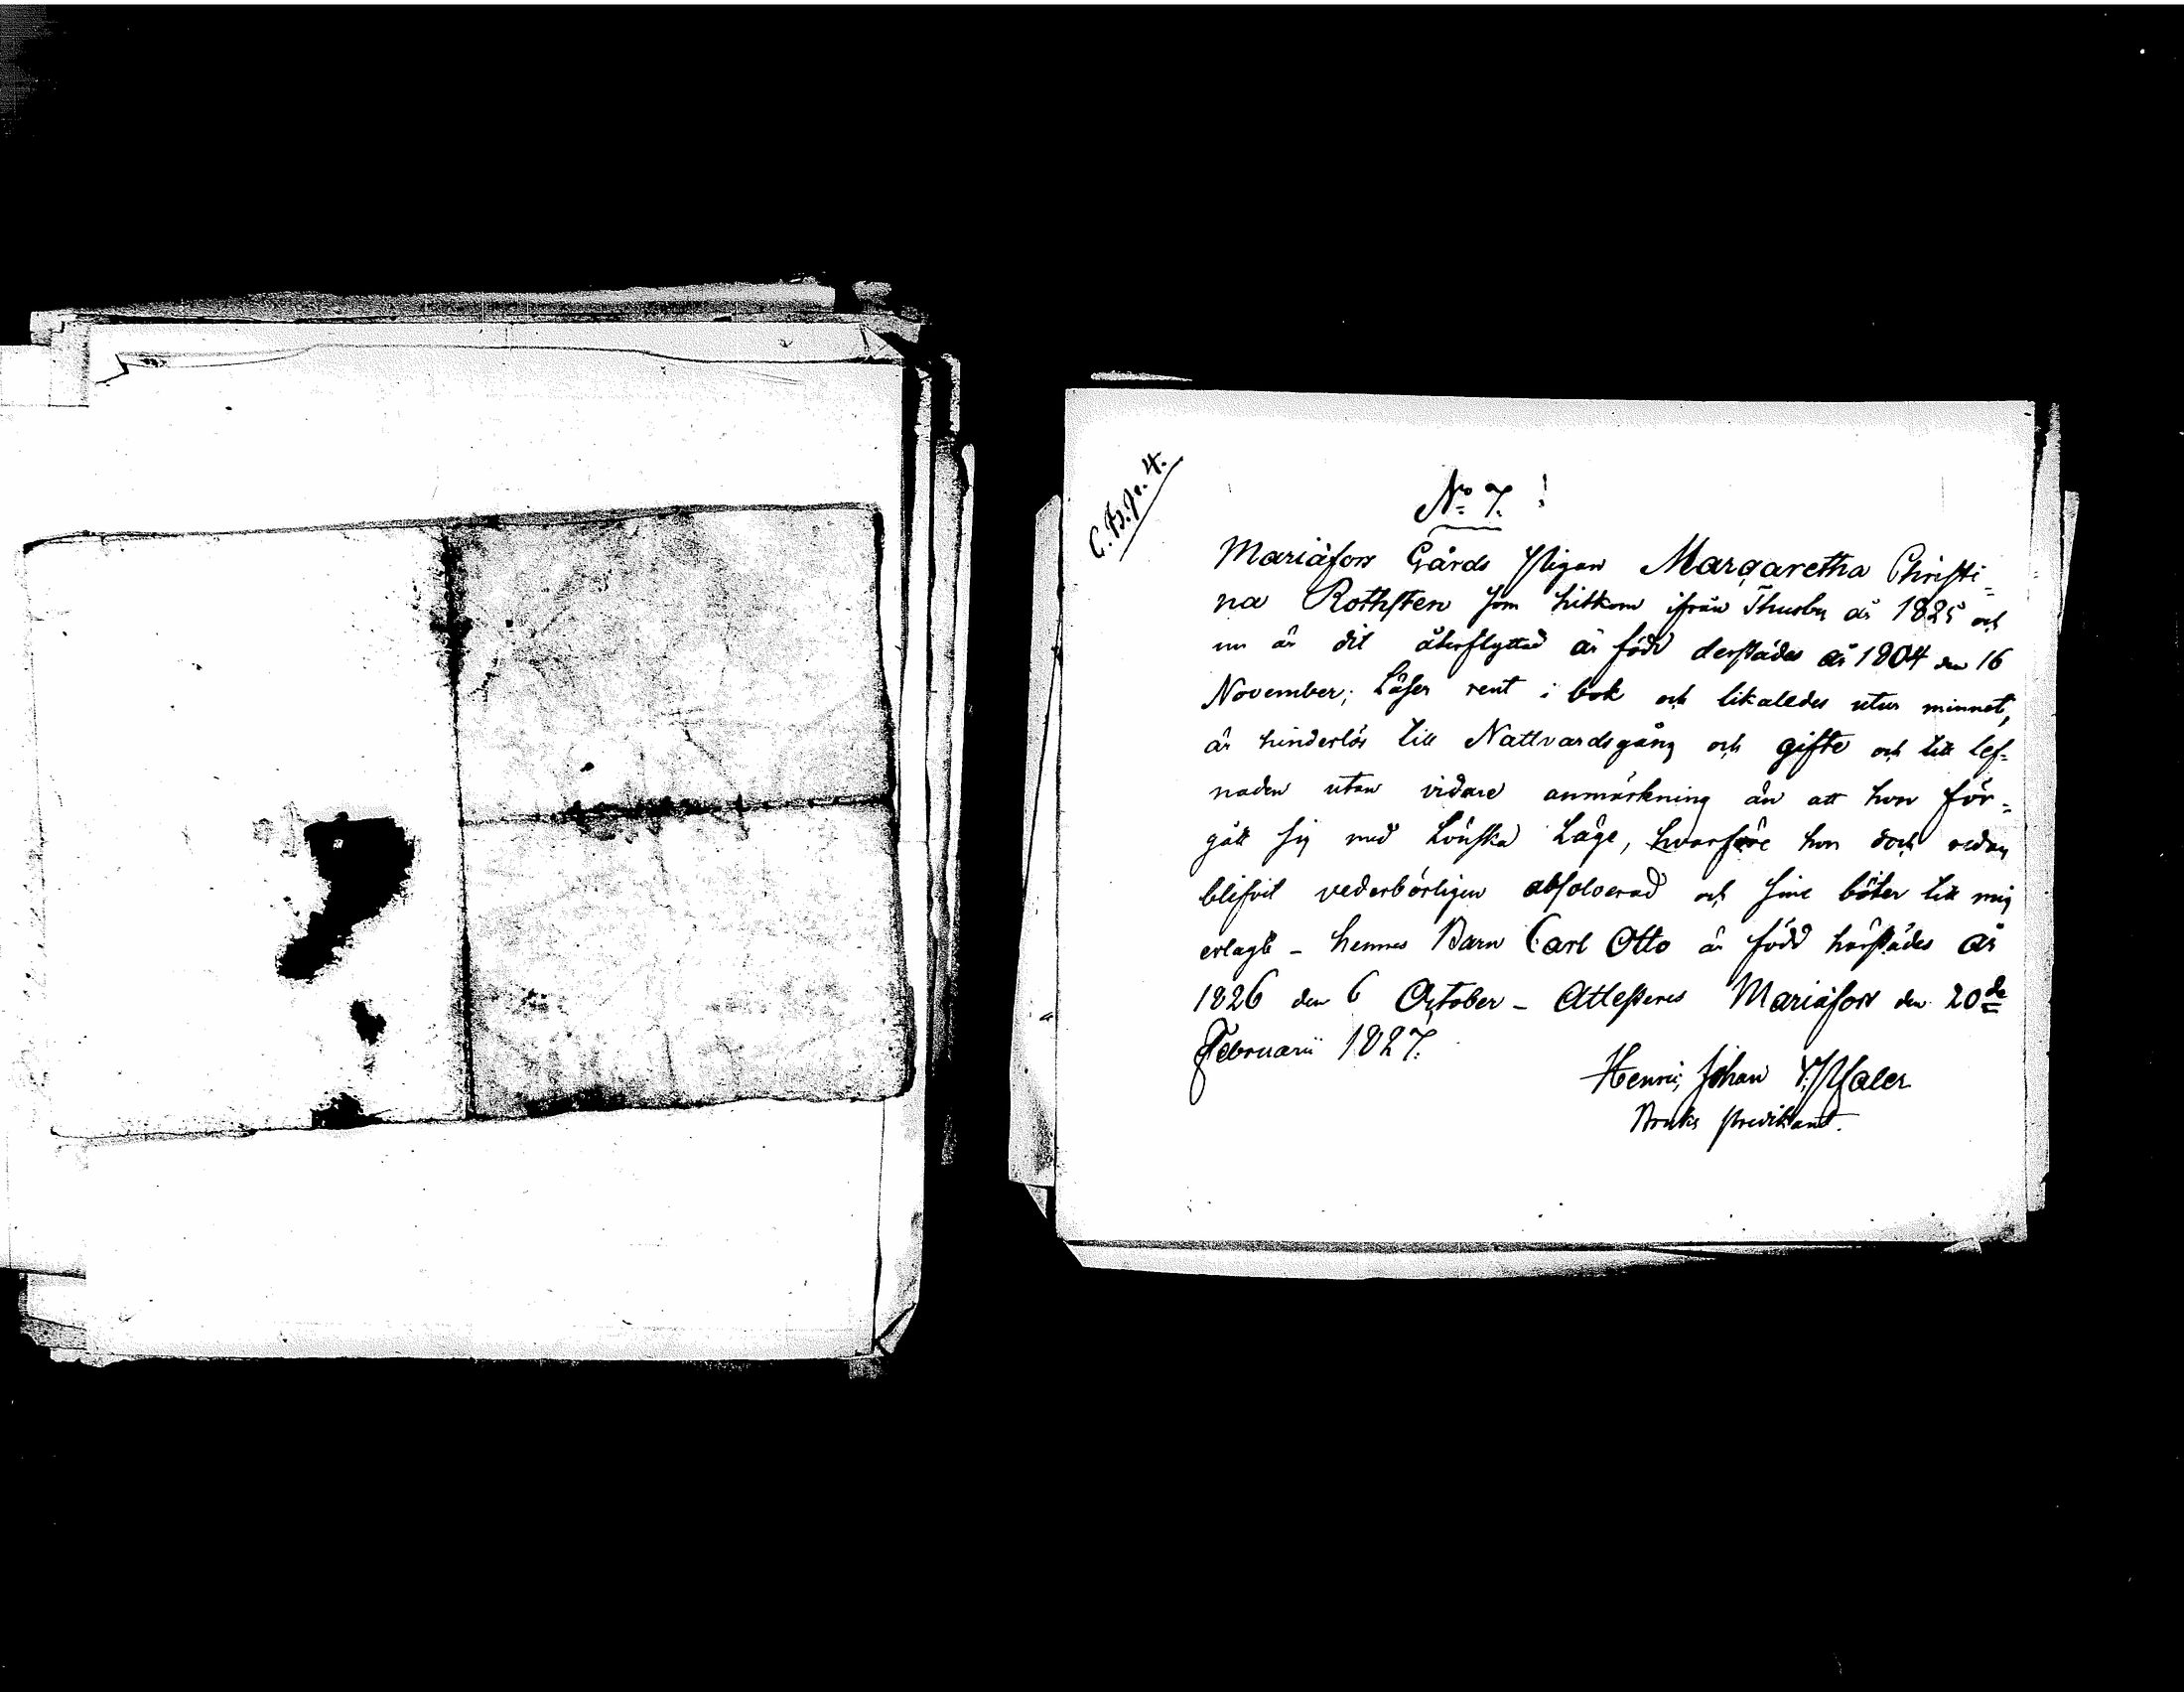 C.B.p. 4.
No 7.
Mariæfors Gårds Pigan Margaretha Christi=
na Rothsten som hitkom ifrån Thusby år 1825 och
nu är dit återflyttad är född derstädes år 1804 den 16
November; Läser rent i bok och likaledes utur minnet,
är hinderlös till Nattvardsgång och gifte och till lef-
naden utan vidare anmärkning än att hon för=
gått sig med Lönska Läge, hvarföre hon doch redan
blifvit vederbörligen absolverad och sine böter till mig
erlagt – hennes Barn Carl Otto är född härstädes år
1826 den 6 October – Attesteres Mariæfors den 20de
Februarii 1827.
Henric Johan
Bruks Predikant.